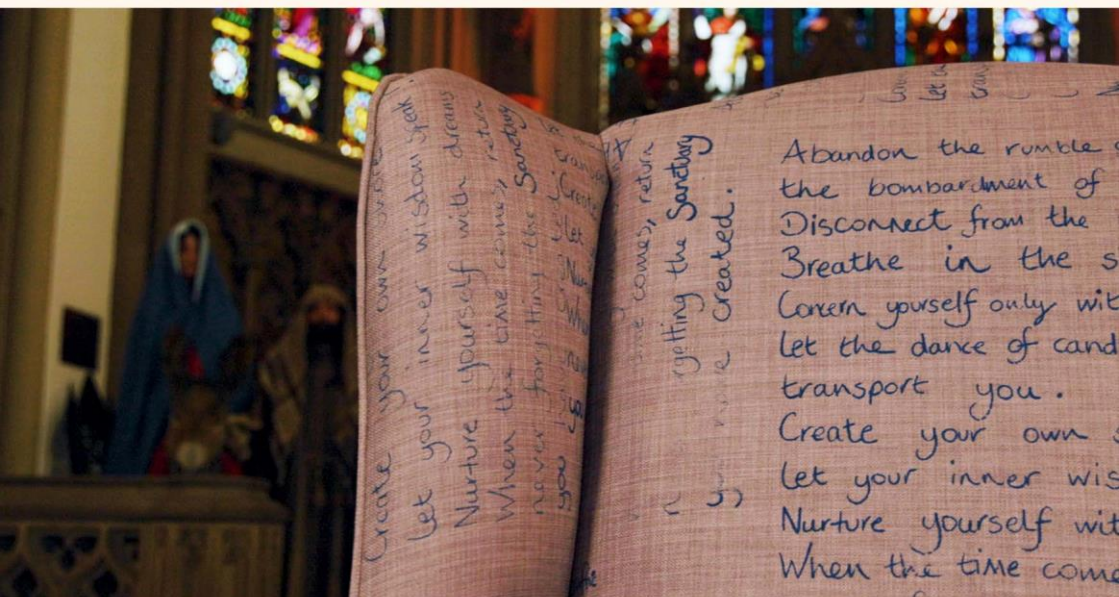 Create your own
Let your inner wisdom speak
Nurture yourself with dreams
When the time comes, return
never forgetting the Sanctuary
you
Create
Let
comes, return
rgetting the Sanctuary
created.
Abandon the rumble
the bombardment of
Disconnect from the
Breathe in the s
Concern yourself only wit
Let the dance of cand
transport you.
Create your own
Let your inner wis
Nurture yourself wit
When the time come